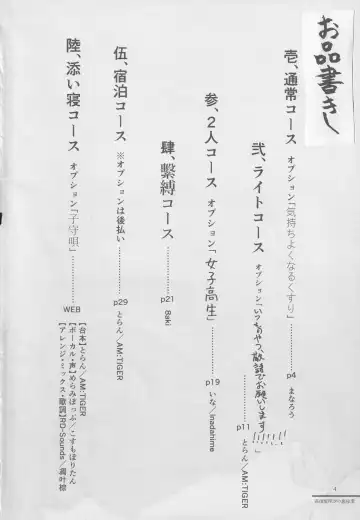 お品書きし
壱、通常コース オプション「気持ちよくなるくすり」………p4 まなろう
弐、ライトコース オプション「いつものやつ、敬語でお願いします!!!!!!」………p11 とらん/AM:TIGER
参、2人コース オプション「女子高生」………p19 いな/inadahime
肆、緊縛コース………p21 8eki
伍、宿泊コース ※オプションは後払い………p29 とらん/AM:TIGER
陸、添い寝コース オプション「子守唄」………WEB
【台本】とらん/AM:TIGER
【ボーカル・声】めらみぽっぷ/こすもぽりたん
【アレンジ・ミックス・歌詞】RD-Sounds/凋叶棕
4